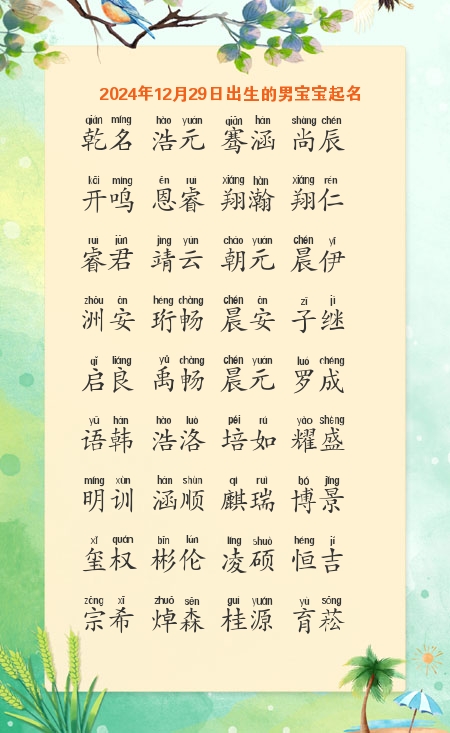 2024年12月29日出生的男宝宝起名
qián míng hào yuán qiān hán shàng chén
乾名 浩元 骞涵 尚辰
kāi míng ēn ruì xiáng hàn xiáng rén
开鸣 恩睿 翔瀚 翔仁
ruì jūn jìng yún cháo yuán chén yī
睿君 靖云 朝元 晨伊
zhōu ān héng chàng chén ān zǐ jì
洲安 珩畅 晨安 子继
qǐ liáng yǔ chàng chén yuán luó chéng
启良 禹畅 晨元 罗成
yǔ hán hào luò péi rú yào shèng
语韩 浩洛 培如 耀盛
míng xùn hán shùn qí ruì bó jǐng
明训 涵顺 麒瑞 博景
xǐ quán bīn lún líng shuò héng jí
玺权 彬伦 凌硕 恒吉
zōng xī zhuō sēn guì yuán yù sōng
宗希 焯森 桂源 育菘